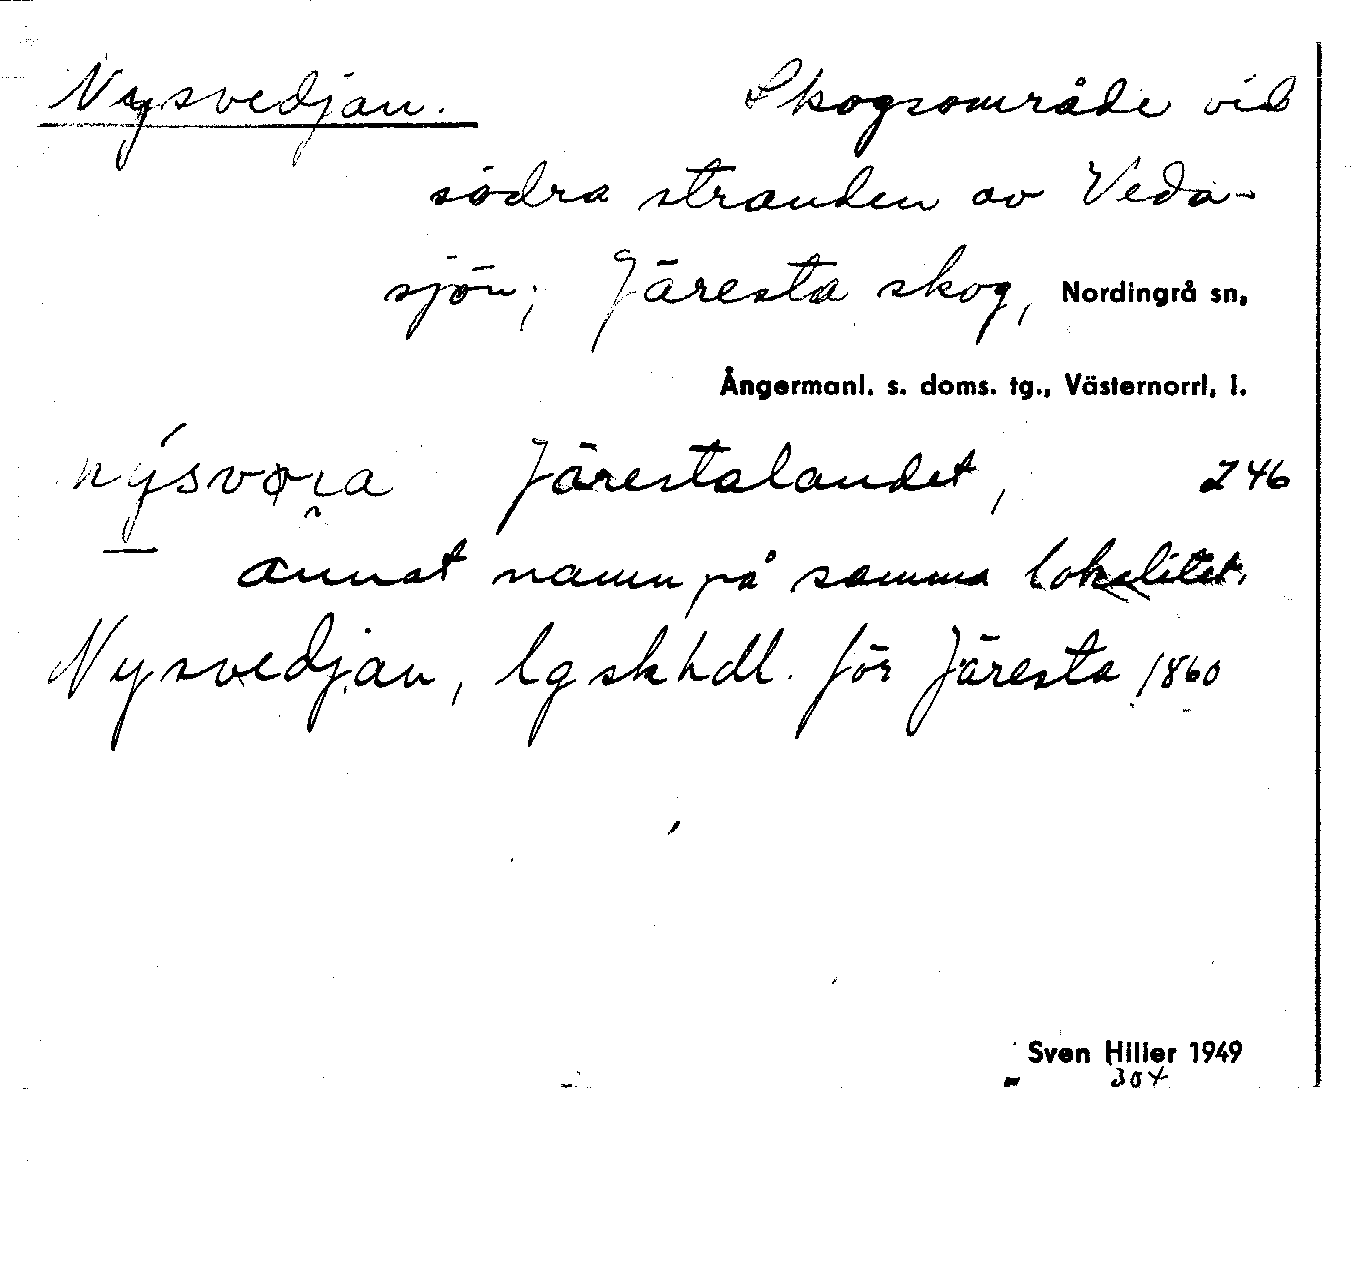 Nysvedjan. Skogsområde vid
södra stranden av Veda-
sjön; Järesta skog, Nordingrå sn,
Ångermanl. s. doms. tg., Västernorrl. l.
Järestalandet, 246
annat namn på samma lokalitet.
Nysvedjan, lgskhdl. för Järesta 1860
Sven Hiller 1949
304